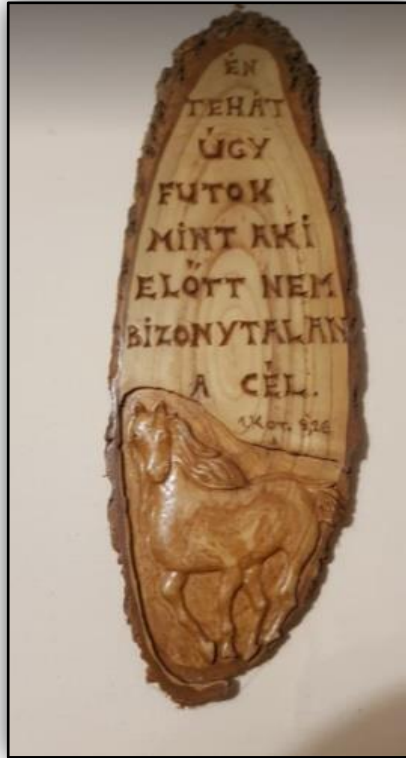 ÉN
TEHÁT
ÚGY
FUTOK
MINT AKI
ELŐTT NEM
BIZONYTALAN
A CÉL.
1,Kor. 9,26